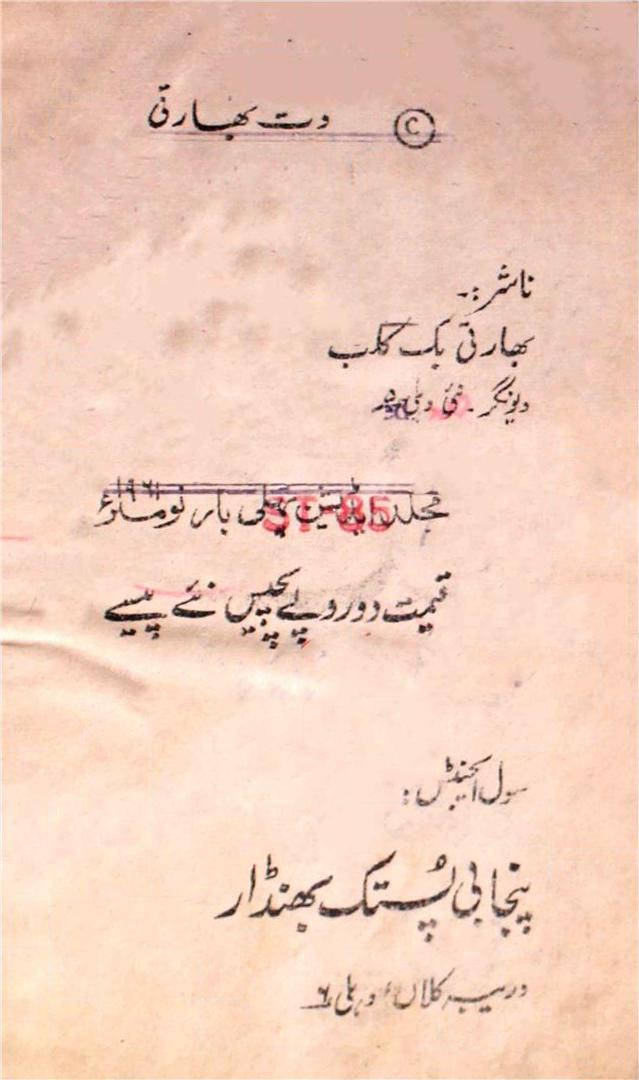 © دت بھارتی
ناشر:۔
بھارتی بک کلب
دیونگر۔ نئی دہلی ۵
مجلد ایڈیشن پہلی بار نومبر ۱۹۶۱ء
ST-85
قیمت دو روپے پچیس نئے پیسے
سول ایجنٹس:
پنجابی پُستک بھنڈار
دریبہ کلاں، دہلی ۶